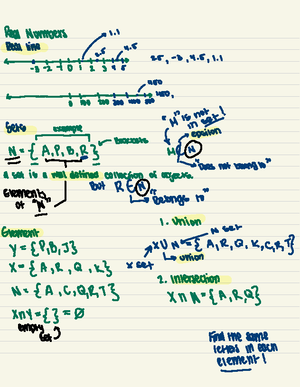 Real Numbers
Real line
1.1
2.5
4.5
-3 -2 -1 0 1 2 3 4 5
2.5, -3, 4.5, 1.1
450
0 100 200 300 400 500
450,
Sets
example
"H" is not
in set!
epsilon
N = { A, P, B, R }
Brackets
H ∉ N
"Does not belong to"
A set is a well defined collection of objects.
Elements
of "N"
But R ∈ N
"Belongs to"
Element
Y = {P, B, J}
X = {A, R, Q, K}
N = {A, C, Q, R, T}
X∩Y = { } = Ø
empty
set
1. Union
N set
X U N = { A, R, Q, K, C, R, T }
X set
union
2. Intersection
X ∩ N = {A, R, Q}
Find the same
letters in each
element!